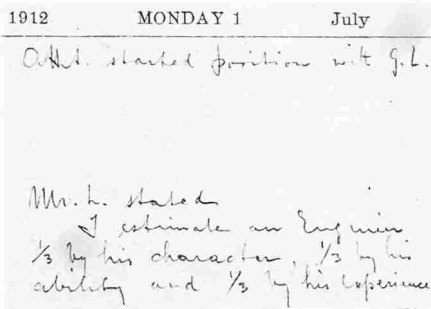 1912 MONDAY 1 July
started position with G.L.
Mr. L. stated
I estimate an Engineer
1/3 by his character, 1/3 by his
ability and 1/3 by his experience